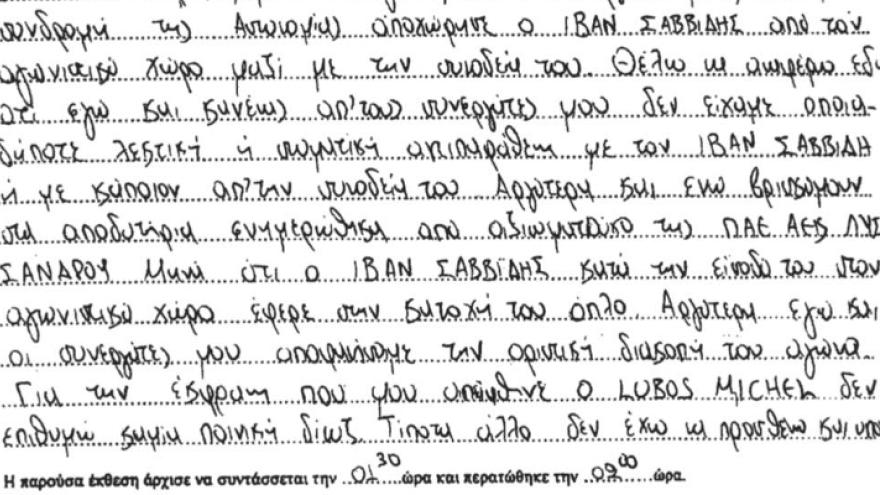 συνδρομή της Αστυνομίας αποχώρησε ο ΙΒΑΝ ΣΑΒΒΙΔΗΣ από τον
αγωνιστικό χώρο μαζί με την συνοδεία του. Θέλω να αναφέρω εδώ
ότι εγώ και κανένας απ' τους συνεργάτες μου δεν είχαμε οποια-
δήποτε λεκτική ή σωματική αντιπαράθεση με τον ΙΒΑΝ ΣΑΒΒΙΔΗ
ή με κάποιον απ' την συνοδεία του. Αργότερα και ενώ βρισκόμουν
στα αποδυτήρια ενημερώθηκα από αξιωματούχο της ΠΑΕ ΑΕΚ ΛΥΣ
ΣΑΝΔΡΟΥ Μηνά ότι ο ΙΒΑΝ ΣΑΒΒΙΔΗΣ κατά την είσοδό του στον
αγωνιστικό χώρο έφερε στην κατοχή του όπλο. Αργότερα εγώ και
οι συνεργάτες μου αποφασίσαμε την οριστική διακοπή του αγώνα.
Για την έκφραση που μου απηύθηνε ο LUBOS MICHEL δεν
επιθυμώ καμία ποινική δίωξη. Τίποτα άλλο δεν έχω να προσθέσω και υπο
Η παρούσα έκθεση άρχισε να συντάσσεται την 01 30 ώρα και περατώθηκε την 02 00 ώρα.